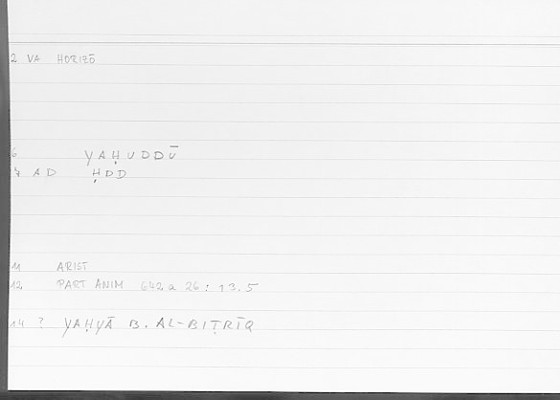 2 VA HORIZŌ
6 YAḤUDDŪ
7 AD ḤDD
11 ARIST
12 PART ANIM 642 a 26 : 13.5
14 ? YAḤYĀ B. AL-BIṬRĪQ